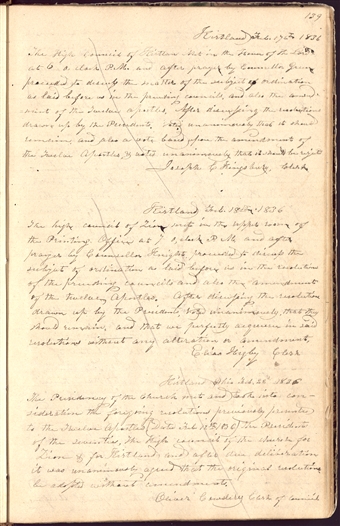 129
Kirtland Feb. 17th 1836
The High Council of Kirtland Met in the House of the Lord
at 6. o, clock P.M. and after prayer by Councillor
proceeded to discuss the matter of the subject of ordination
as laid before in the preceding councils, and also the amend-
ment of the Twelve Apostles. After discussing the resolutions
drawn up by the Presidents, Voted unanimously that it should
remain, and also a vote upon the amendment of
the Twelve Apostles, & voted unanimously that it should
Joseph C. Kingsbury, Clerk
Kirtland Feb. 18th 1836
The high council of Zion met in the upper room of
the Printing Office at 7 o, clock P.M. and after
prayer by Counsellor Knight, proceeded to discuss the
subject of ordination as laid before us in the resolutions
of the preceding councils and also the amendment
of the twelve Apostles. After discussing the resolution
drawn up by the Presidents, Voted unanimously, that they
should remain, and that we perfectly acquiesce in said
resolutions without any alteration or amendment.
Elias Higby Clerk
Kirtland Ohio Feb. 22 1836
The Presidency of the Church met and took into con-
sideration the foregoing resolutions previously presented
to the Twelve Apostles, the Presidents
of the seventies, The High council of the church for
Zion & for Kirtland; and after due deliberation
it was unanimously agreed that the original resolution
be adopted without amendments
Oliver Cowdery Clerk of Council